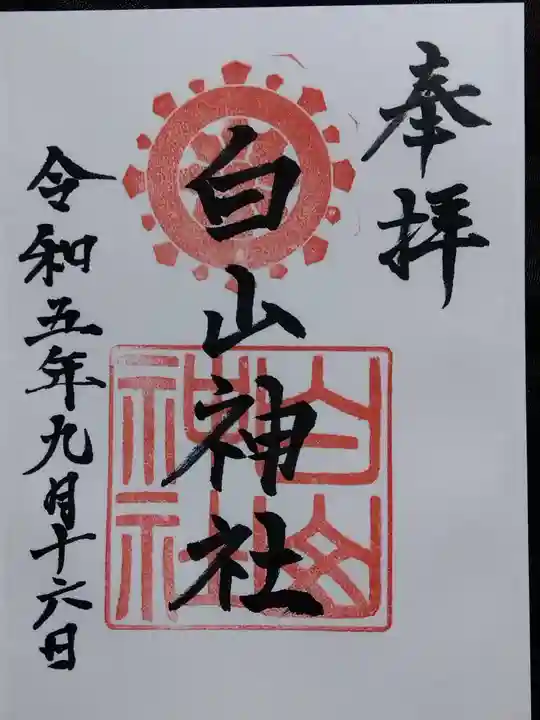 奉拝
白山神社
白山神社
令和五年九月十六日